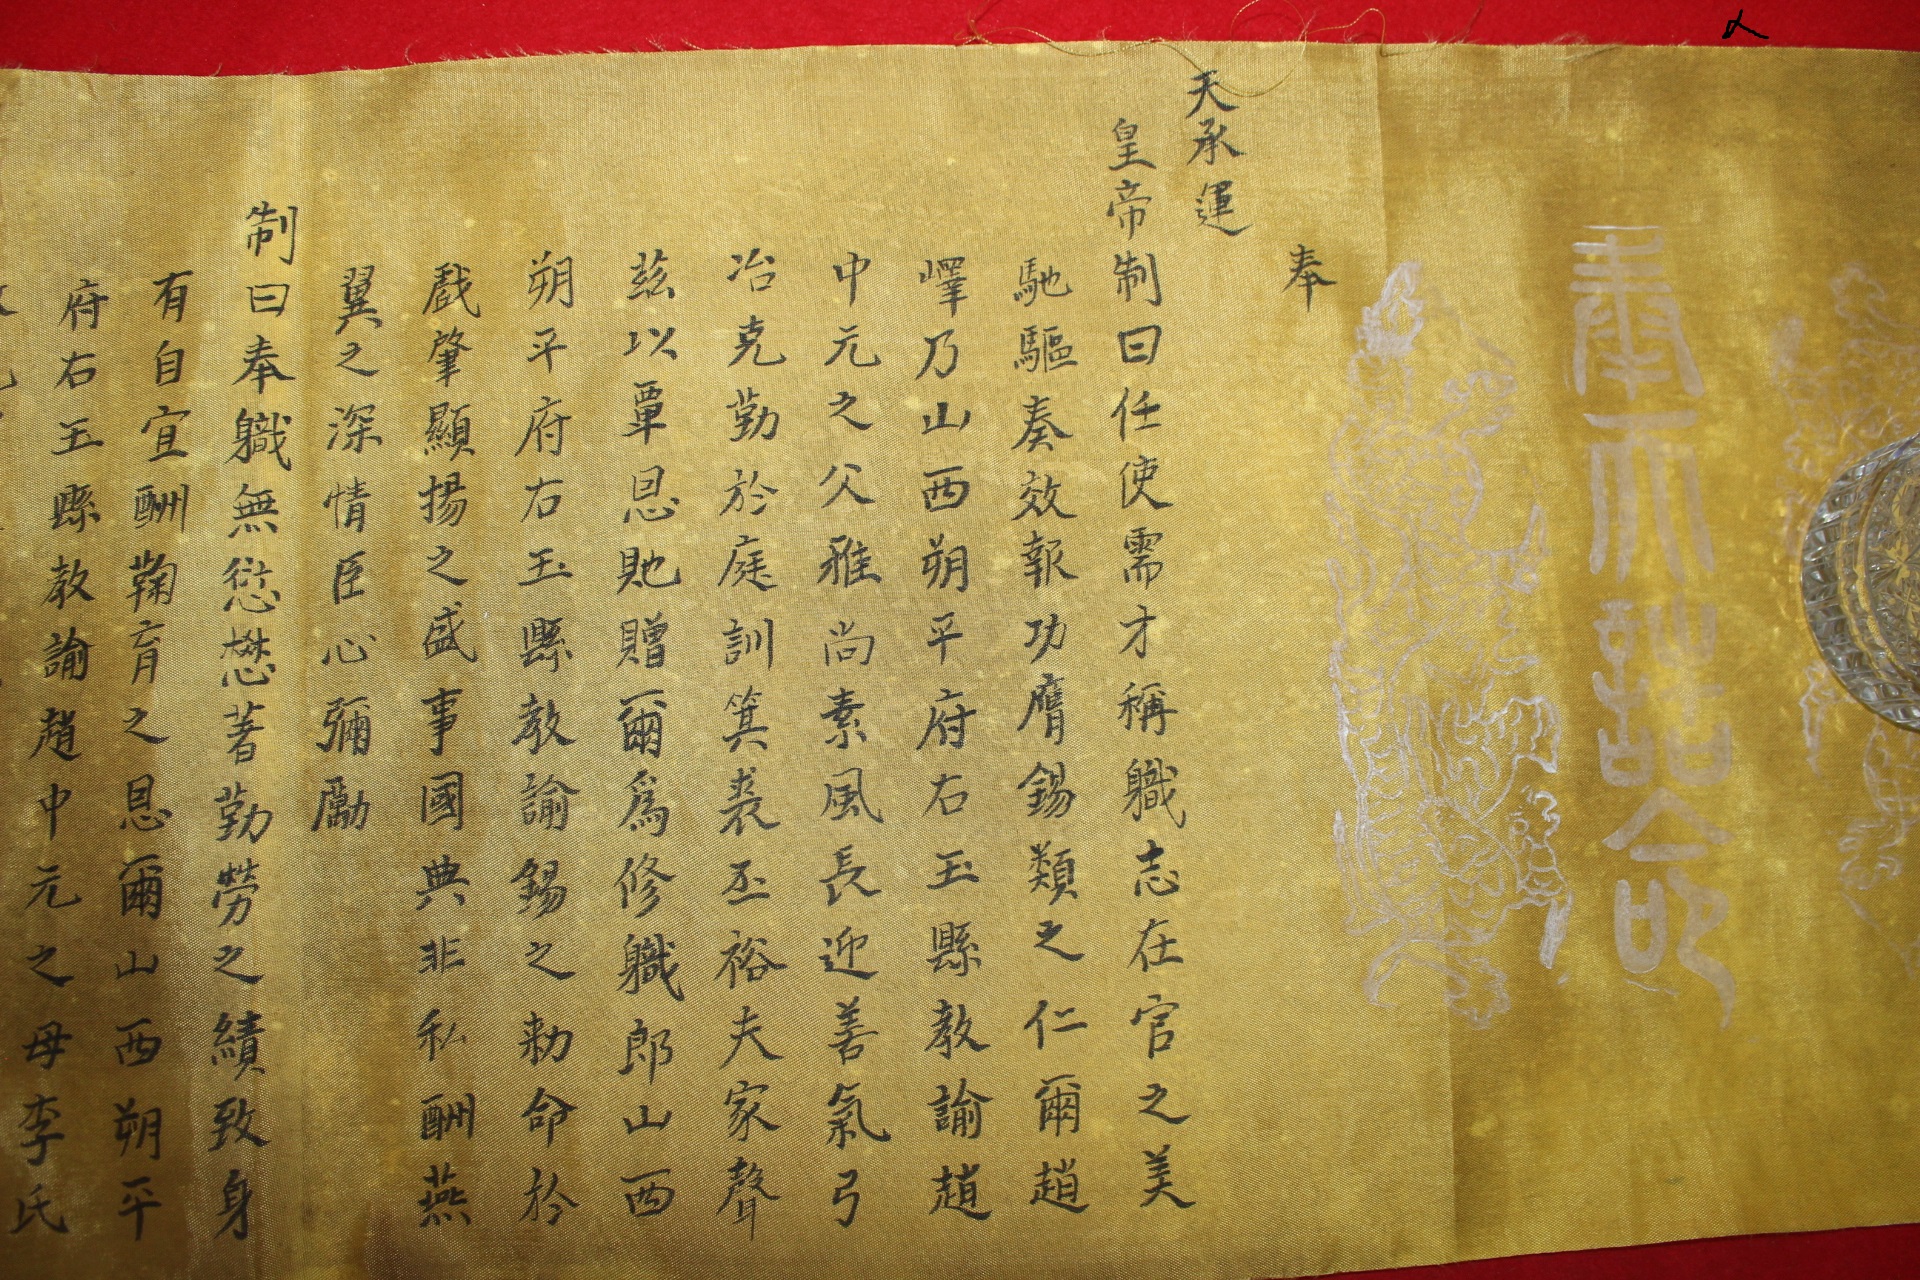 奉天誥命
奉
天承運
皇帝制曰任使需才稱職志在官之美
馳驅奏效報功膺錫類之仁爾趙
嶧乃山西朔平府右玉縣教諭趙
中元之父雅尚素風長迎善氣弓
冶克勤於庭訓箕裘丕裕夫家聲
茲以覃恩貤贈爾爲修職郎山西
朔平府右玉縣教諭錫之勅命於
戲肇顯揚之盛事國典非私酬燕
翼之深情臣心彌勵
制曰奉職無愆懋著勤勞之績致身
有自宜酬鞠育之恩爾山西朔平
府右玉縣教諭趙中元之母李氏